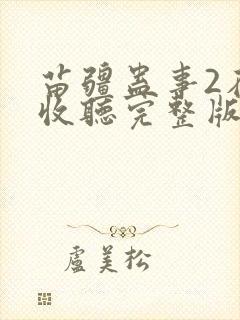 苗疆蛊事2在
收聽完整版
盧美松